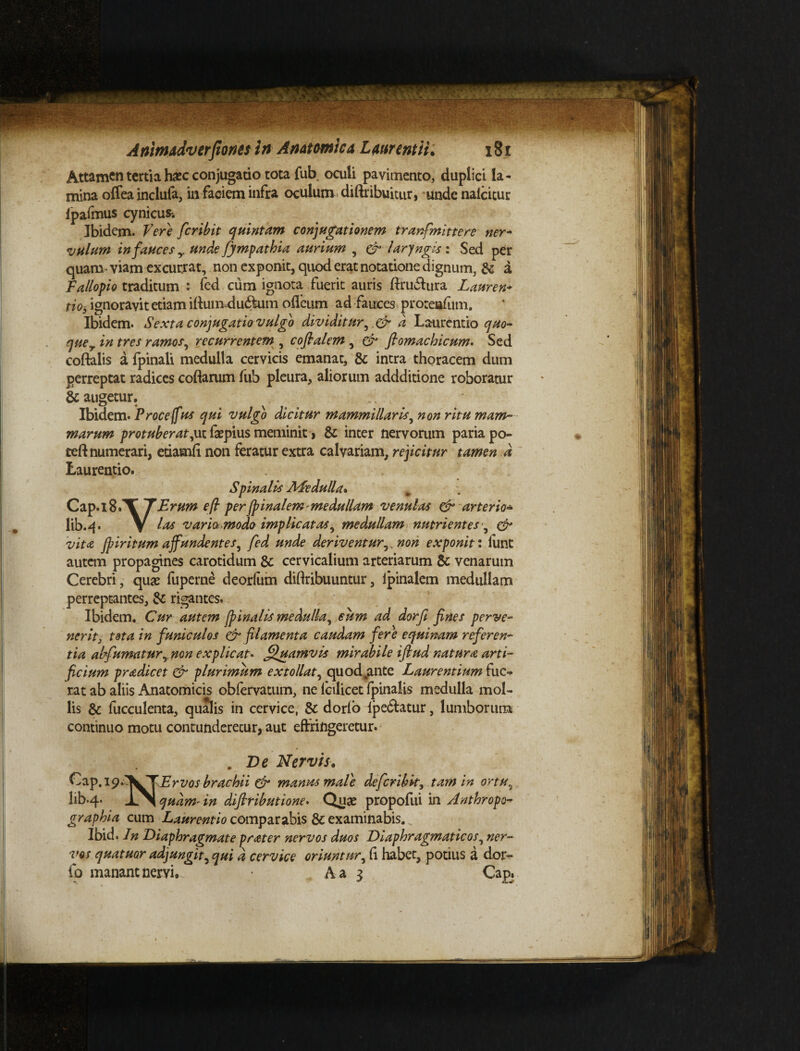 Animadverſiones in Anatomica Laurentii. 181
Attamen tertia hæc conjugatio tota ſub oculi pavimento, duplici la-
mina oſſea incluſa, in faciem infra oculum diſtribuitur, unde naſcitur
ſpaſmus cynicus.
Ibidem. Vere ſcribit quintam conjugationem tranſmittere ner-
vulum in fauces, unde ſympathia aurium , & laryngis : Sed per
quam viam excurrat, non exponit, quod erat notatione dignum, & à
Fallopio traditum : ſed cùm ignota fuerit auris ſtructura Lauren-
tio, ignoravit etiam iſtum ductum oſſeum ad fauces protenſum.
Ibidem. Sexta conjugatio vulgò dividitur, & à Laurentio quo-
que, in tres ramos, recurrentem , coſtalem , & ſtomachicum. Sed
coſtalis à ſpinali medulla cervicis emanat, & intra thoracem dum
perreptat radices coſtarum ſub pleura, aliorum addditione roboratur
& augetur.
Ibidem. Proceſſus qui vulgò dicitur mammillaris, non ritu mam-
marum protuberat, ut ſæpius meminit, & inter nervorum paria po-
teſt numerari, etiamſi non feratur extra calvariam, rejicitur tamen à
Laurentio.
Spinalis Medulla.
Cap.18. VErum eſt per ſpinalem medullam venulas & arterio-
lib.4. las vario modo implicatas, medullam nutrientes, &
vitæ ſpiritum affundentes, ſed unde deriventur, non exponit : ſunt
autem propagines carotidum & cervicalium arteriarum & venarum
Cerebri, quæ ſupernè deorſùm diſtribuuntur, ſpinalem medullam
perreptantes, & rigantes.
Ibidem. Cur autem ſpinalis medulla, cùm ad dorſi fines perve-
nerit, tota in funiculos & filamenta caudam ferè equinam referen-
tia abſumatur, non explicat. Quamvis mirabile iſtud naturæ arti-
ficium prædicet & plurimùm extollat, quod ante Laurentium fue-
rat ab aliis Anatomicis obſervatum, ne ſcilicet ſpinalis medulla mol-
lis & ſucculenta, qualis in cervice, & dorſo ſpectatur, lumborum
continuo motu contunderetur, aut effringeretur.
De Nervis.
Cap.19. NErvos brachii & manus malè deſcribit, tam in ortu,
lib.4. quàm in diſtributione. Quæ propoſui in Anthropo-
graphia cum Laurentio comparabis & examinabis.
Ibid. In Diaphragmate præter nervos duos Diaphragmaticos, ner-
vos quatuor adjungit, qui à cervice oriuntur, ſi habet, potiùs à dor-
ſo manant nervi. A a 3 Cap.